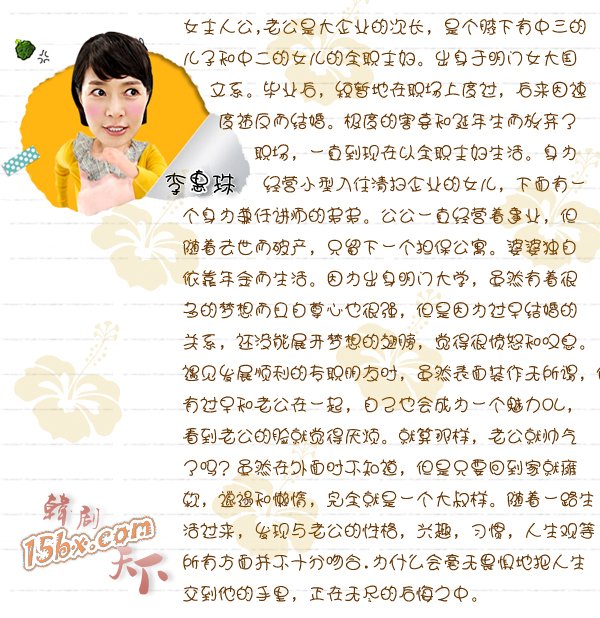 女主人公,老公是大企业的次长，是个膝下有中三的
儿子和中二的女儿的全职主妇。出身于明门女大国
立系。毕业后，短暂地在职场上度过，后来因速
度违反而结婚。极度的害喜和延年生而放弃了
职场，一直到现在以全职主妇生活。身为
李惠珠
经营小型入住清扫企业的女儿，下面有一
个身为兼任讲师的弟弟。公公一直经营着事业，但
随着去世而破产，只留下一个担保公寓。婆婆独自
依靠年金而生活。因为出身明门大学，虽然有着很
多的梦想而且自尊心也很强，但是因为过早结婚的
关系，还没能展开梦想的翅膀，觉得很愤怒和叹息。
遇见发展顺利的专职朋友时，虽然表面装作无所谓，但
有过早和老公在一起，自己也会成为一个魅力OL，
看到老公的脸就觉得厌烦。就算那样，老公就帅气
了吗？虽然在外面时不知道，但是只要回到家就瘫
软，邋遢和懒惰，完全就是一个大叔样。随着一路生
活过来，发现与老公的性格，兴趣，习惯，人生观等
所有方面并不十分吻合.为什么会毫无畏惧地把人生
交到他的手里，正在无尽的后悔之中。
韩剧
15bx.com
天下